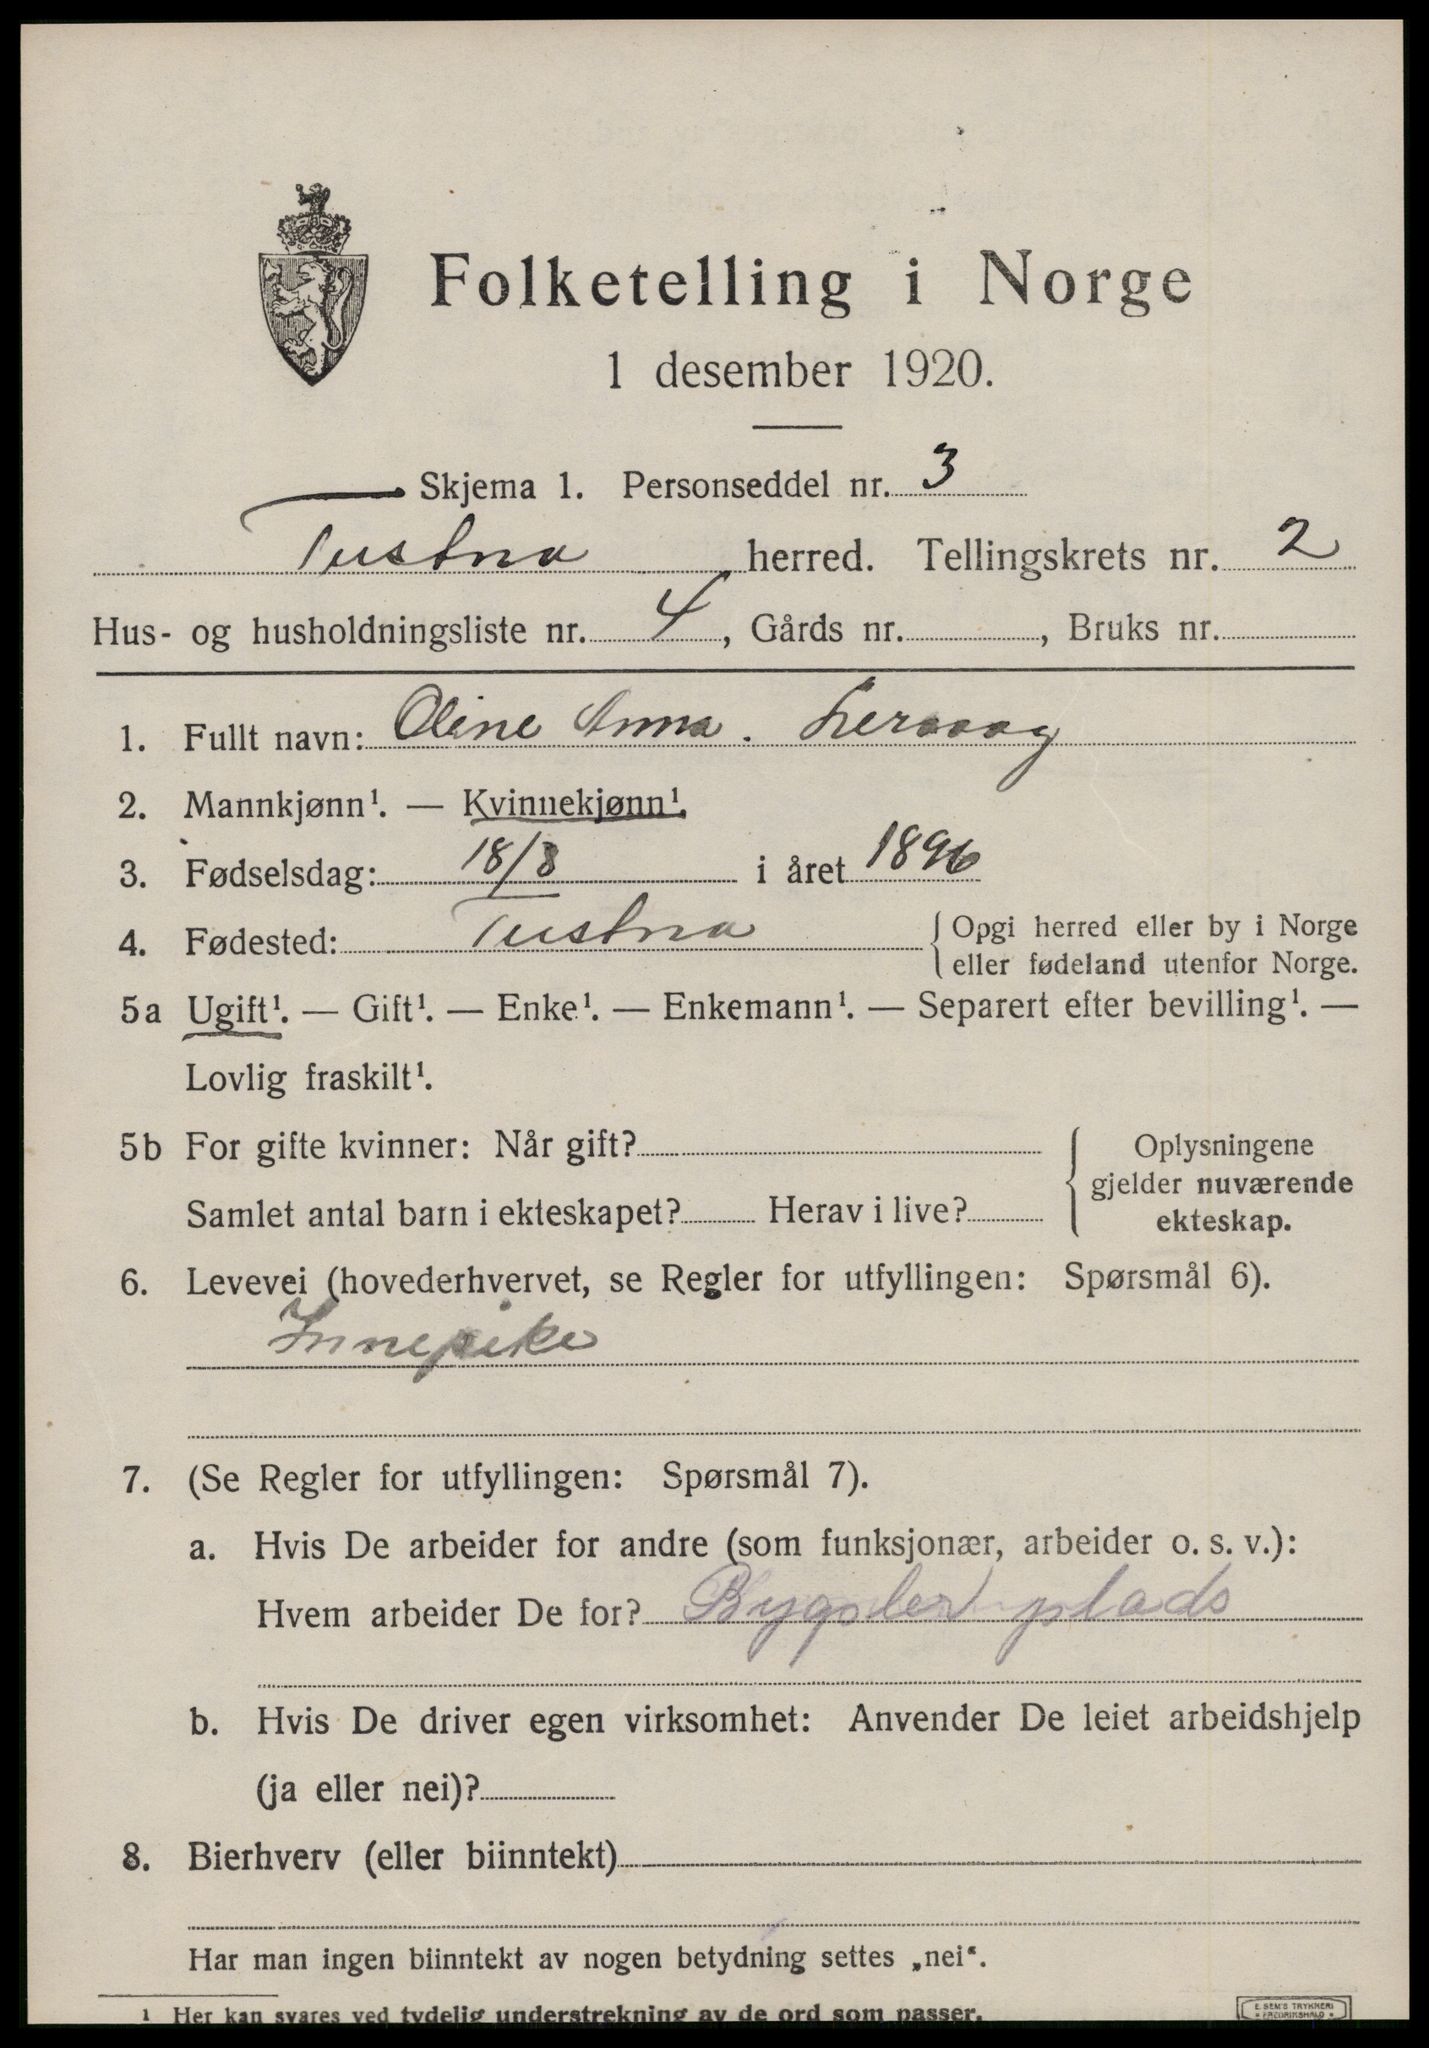 Folketelling i Norge
1 desember 1920.
Skjema 1. Personseddel nr. 3
Tustna herred. Tellingskrets nr. 2
Hus- og husholdningsliste nr. 4, Gårds nr. , Bruks nr.
1. Fullt navn: Oline Anna. Lervaag
2. Mannkjønn¹. — Kvinnekjønn¹.
3. Fødselsdag: 18/8 i året 1896
4. Fødested: Tustna { Opgi herred eller by i Norge
eller fødeland utenfor Norge.
5a Ugift¹. — Gift¹. — Enke¹. — Enkemann¹. — Separert efter bevilling¹. —
Lovlig fraskilt¹.
5b For gifte kvinner: Når gift? { Oplysningene
gjelder nuværende
Samlet antal barn i ekteskapet? Herav i live? ekteskap.
6. Levevei (hovederhvervet, se Regler for utfyllingen: Spørsmål 6).
Innepike
7. (Se Regler for utfyllingen: Spørsmål 7).
a. Hvis De arbeider for andre (som funksjonær, arbeider o. s. v.):
Hvem arbeider De for? Bygsler plads
b. Hvis De driver egen virksomhet: Anvender De leiet arbeidshjelp
(ja eller nei)?
8. Bierhverv (eller biinntekt)
Har man ingen biinntekt av nogen betydning settes „nei“.
¹ Her kan svares ved tydelig understrekning av de ord som passer.
E. SEM'S TRYKKERI
FREDRIKSHALD